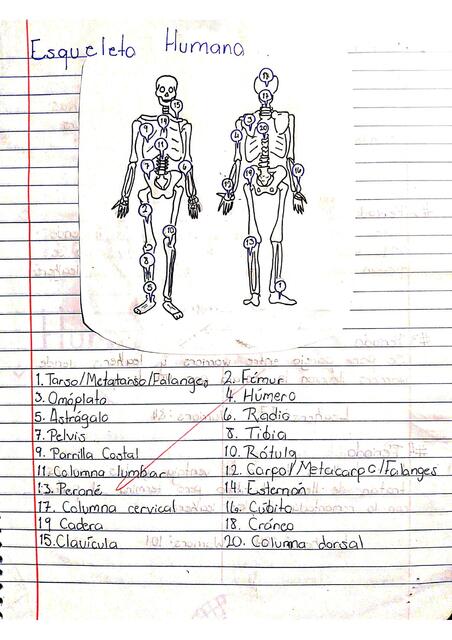 Esqueleto Humano
1. Tarso/Metatarso/Falanges 2. Fémur
3. Omóplato 4. Húmero
5. Astrágalo 6. Radio
7. Pelvis 8. Tibia
9. Parrilla Costal 10. Rótula
11. Columna lumbar 12. Carpo/Metacarpo/Falanges
13. Peroné 14. Esternón
17. Columna cervical 16. Cúbito
19 Cadera 18. Cráneo
15. Clavícula 20. Columna dorsal